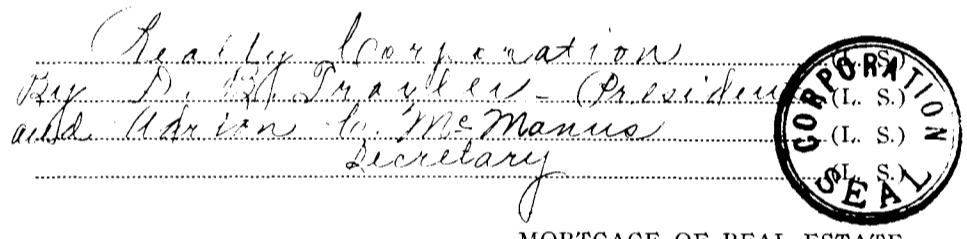 Realty Corporation (L. S.)
By D. B. Traxler - President (L. S.)
and Adrian C. McManus (L. S.)
Secretary (L. S.)
CORPORATION SEAL
MORTGAGE OF REAL ESTATE